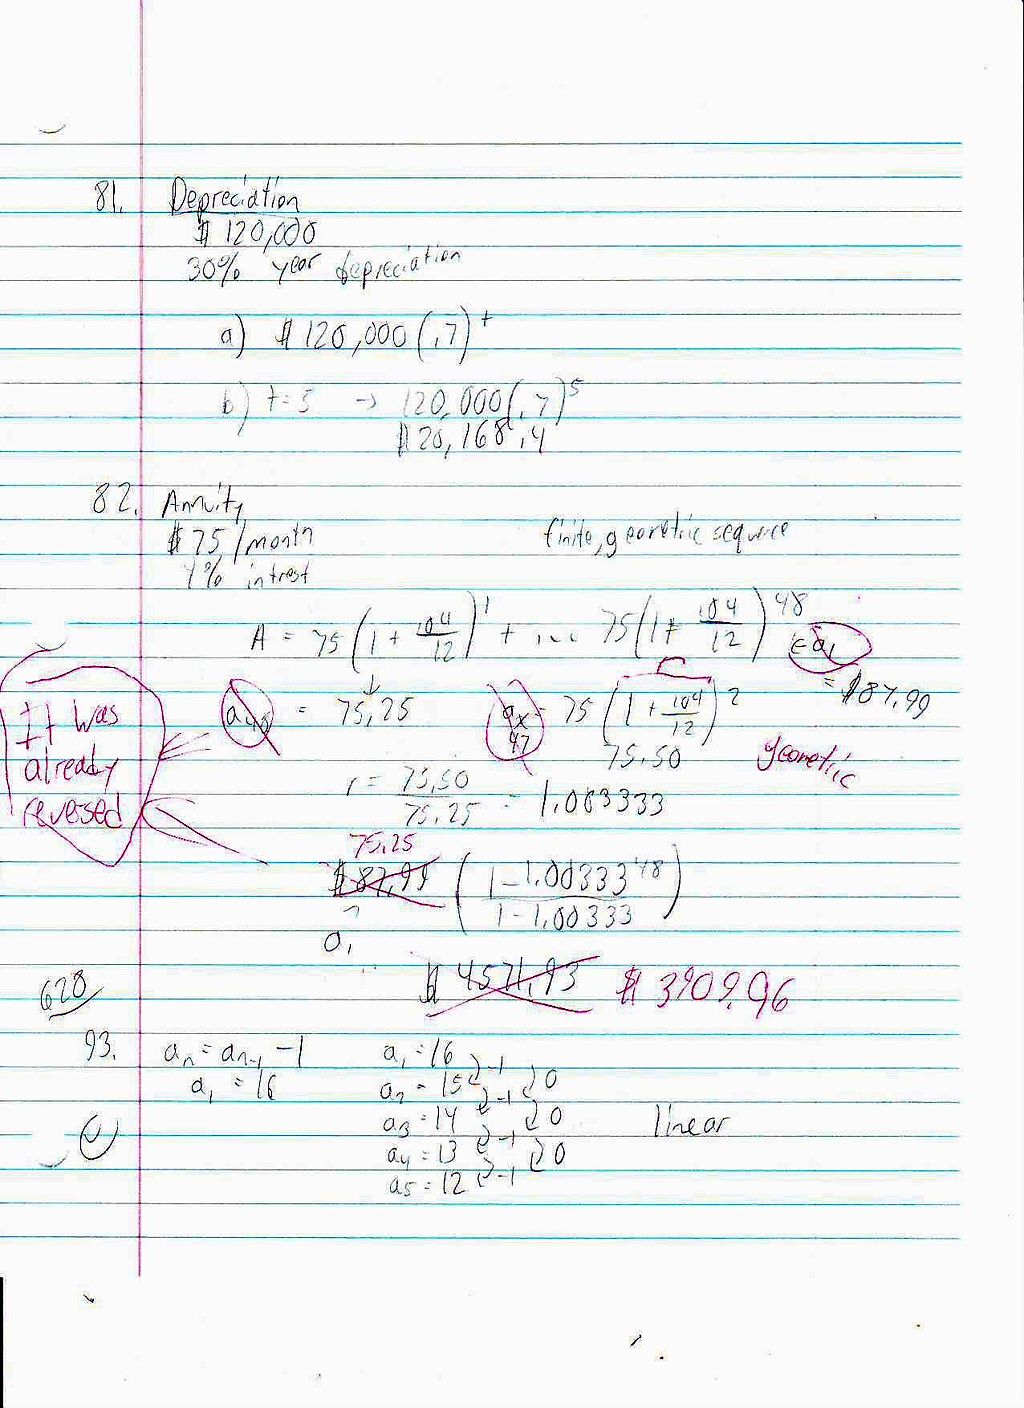 81. Depreciation
$ 120,000
30% year depreciation
a) $ 120,000 (.7)^t
b) t=5 → 120,000(.7)^5
$ 20,168.4
82. Annuity
$75/month finite, geometric sequence
4% intrest
A = 75(1+.04/12)^1 + ... 75(1+.04/12)^48 ← a1
= $87.99
a48 = 75.25 ax 47 = 75(1+.04/12)^2
75.50 geometric
It was already revesed
r = 75.50/75.25 = 1.003333
75.25
$87.99 (1-1.00333^48/1-1.00333)
a1
$ 4571.93 $ 3909.96
628
93. an = an-1 -1 a1 = 16
a1 = 16 a2 = 15 -1 0
a3 = 14 -1 0 linear
a4 = 13 -1 0
a5 = 12 -1